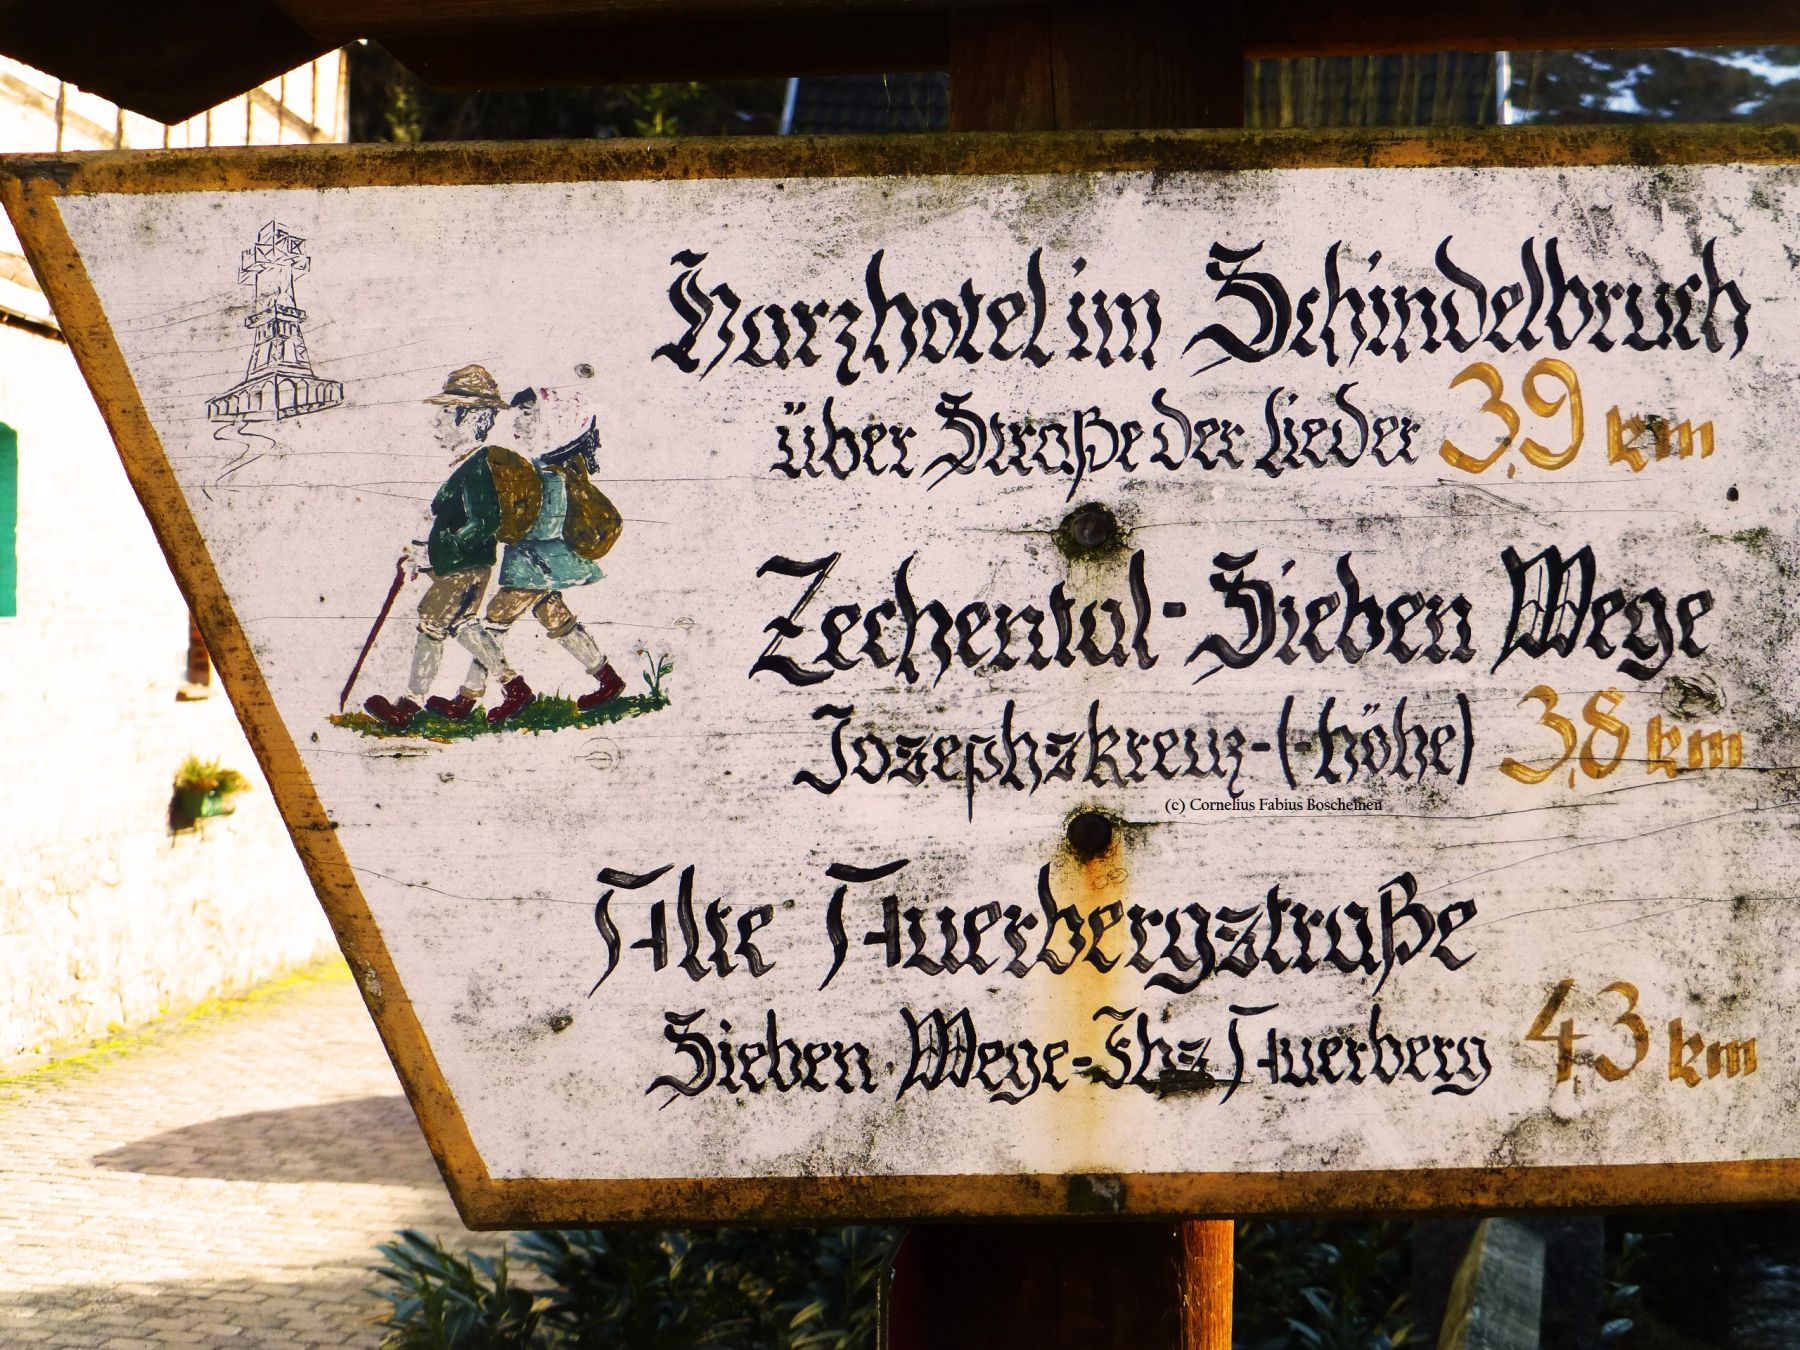 Harzhotel im Schindelbruch
über Straße der Lieder 3,9 km
Zechental - Sieben Wege
Josephskreuz-(-höhe) 3,8 km
(c) Cornelius Fabius Boscheinen
Alte Auerbergstraße
Sieben Wege-Fhs Auerberg 43 km